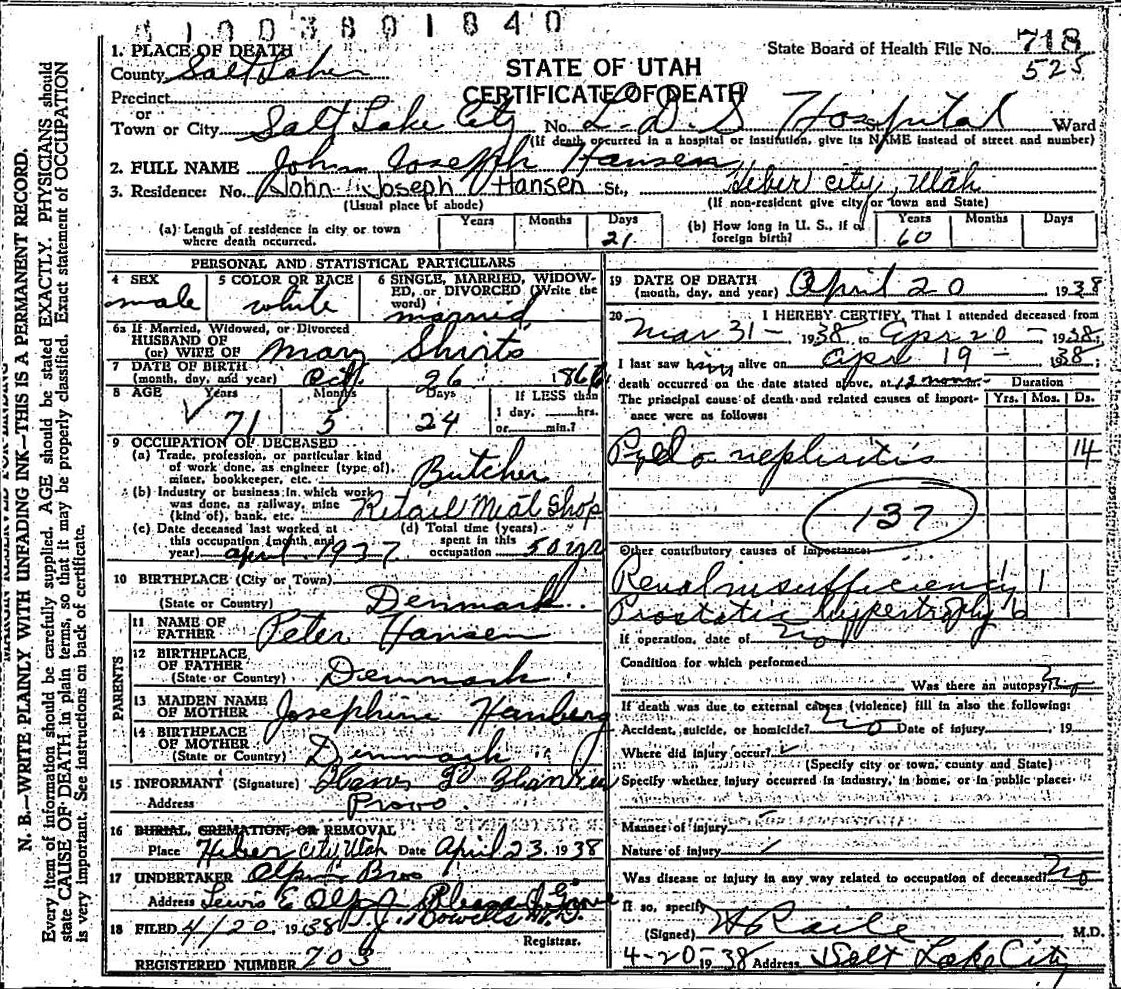 41003801840
1. PLACE OF DEATH
County Salt Lake
Precinct
or
Town or City Salt Lake City No. L. D. S Hospital Ward
STATE OF UTAH
CERTIFICATE OF DEATH
State Board of Health File No. 718
525
(If death occurred in a hospital or institution, give its NAME instead of street and number)
2. FULL NAME John Joseph Hansen
3. Residence: No. John Joseph Hansen St., Heber city, Utah
(Usual place of abode) (If non-resident give city or town and State)
(a) Length of residence in city or town where death occurred. Years Months Days 21
(b) How long in U. S., if of foreign birth? Years 60 Months Days
PERSONAL AND STATISTICAL PARTICULARS
4 SEX
male
5 COLOR OR RACE
white
6 SINGLE, MARRIED, WIDOWED, or DIVORCED (Write the word)
married
6a If Married, Widowed, or Divorced
HUSBAND OF
(or) WIFE OF Mary Shirts
7 DATE OF BIRTH
(month, day, and year) Oct. 26 1866
8 AGE Years Months Days If LESS than
71 5 24 1 day, hrs.
or min.?
9 OCCUPATION OF DECEASED
(a) Trade, profession, or particular kind
of work done, as engineer (type of),
miner, bookkeeper, etc. Butcher
(b) Industry or business in which work
was done, as railway, mine
(kind of), bank, etc. Retail Meat Shop
(c) Date deceased last worked at
this occupation (month and
year) april 1937
(d) Total time (years)
spent in this
occupation 50 yr
10 BIRTHPLACE (City or Town)
(State or Country) Denmark
PARENTS
11 NAME OF
FATHER Peter Hansen
12 BIRTHPLACE
OF FATHER
(State or Country) Denmark
13 MAIDEN NAME
OF MOTHER Josephine Hanberg
14 BIRTHPLACE
OF MOTHER
(State or Country) Denmark
15 INFORMANT (Signature)
Address Provo
16 BURIAL, CREMATION, OR REMOVAL
Place Heber City Utah Date April 23, 1938
17 UNDERTAKER Olpin Bros
Address Lewis E Olpin Pleasant Grove
18 FILED 4/20, 1938 T. J. Howells M.D.
Registrar.
REGISTERED NUMBER 703
19 DATE OF DEATH
(month, day, and year) April 20 1938
20 I HEREBY CERTIFY, That I attended deceased from
Mar 31 - 1938 to Apr 20 - 1938;
I last saw him alive on Apr 19 - 1938;
death occurred on the date stated above, at 12 noon.
The principal cause of death and related causes of importance were as follows:
Duration
Yrs. Mos. Ds.
Pyelo nephritis 14
137
Other contributory causes of importance:
Renal insufficiency 1
Prostatic hypertrophy 6
If operation, date of no
Condition for which performed
Was there an autopsy? no
If death was due to external causes (violence) fill in also the following:
Accident, suicide, or homicide? no Date of injury , 19
Where did injury occur?
(Specify city or town, county and State)
Specify whether injury occurred in industry, in home, or in public place:
Manner of injury
Nature of injury
Was disease or injury in any way related to occupation of deceased? no
If so, specify
(Signed) M.D.
4-20-1938 Address Salt Lake City
N. B.—WRITE PLAINLY WITH UNFADING INK—THIS IS A PERMANENT RECORD.
Every item of information should be carefully supplied. AGE should be stated EXACTLY. PHYSICIANS should
state CAUSE OF DEATH in plain terms, so that it may be properly classified. Exact statement of OCCUPATION
is very important. See instructions on back of certificate.